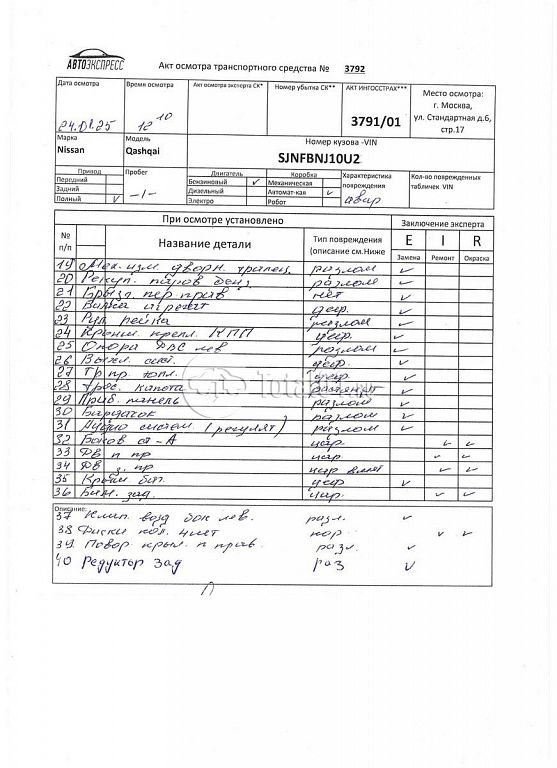 АВТОЭКСПРЕСС
Акт осмотра транспортного средства № 3792
Дата осмотра Время осмотра Акт осмотра эксперта СК* Номер убытка СК** АКТ ИНГОССТРАХ*** Место осмотра:
г. Москва,
ул. Стандартная д.6,
стр.17
12 10
3791/01
Марка Модель Номер кузова -VIN
Nissan Qashqai SJNFBNJ10U2
Привод Пробег Двигатель Коробка Характеристика повреждения Кол-во поврежденных табличек VIN
Передний Бензиновый ✓ Механическая
Задний -/- Дизельный Автомат-кая ✓ авар
Полный ✓ Электро Робот
При осмотре установлено Заключение эксперта
№ п/п Название детали Тип повреждения (описание см.Ниже E I R
Замена Ремонт Окраска
19 Мех-изм дворн. трапец. разлом ✓
20 разлом ✓
21 Брызг. пер прав нет ✓
22 деф. ✓
23 Рул рейка разлом ✓
24 Кронш. крепл. КПП деф. ✓
25 Опора ДВС лев разлом ✓
26 деф. ✓
27 деф ✓
28 Трос. капота ✓
29 панель разлом ✓
30 Бардачок разлом ✓
31 Аудио систем. разлом ✓
32 Боков ст-А цар. ✓ ✓
33 Дв п пр цар. ✓ ✓
34 Дв з. пр ✓ ✓
35 деф ✓
36 зад. цар. ✓ ✓
Описание:
37 Клап. возд бок лев. разл. ✓
38 ✓ ✓
39 Повор. п прав. разл. ✓
40 Редуктор зад раз ✓